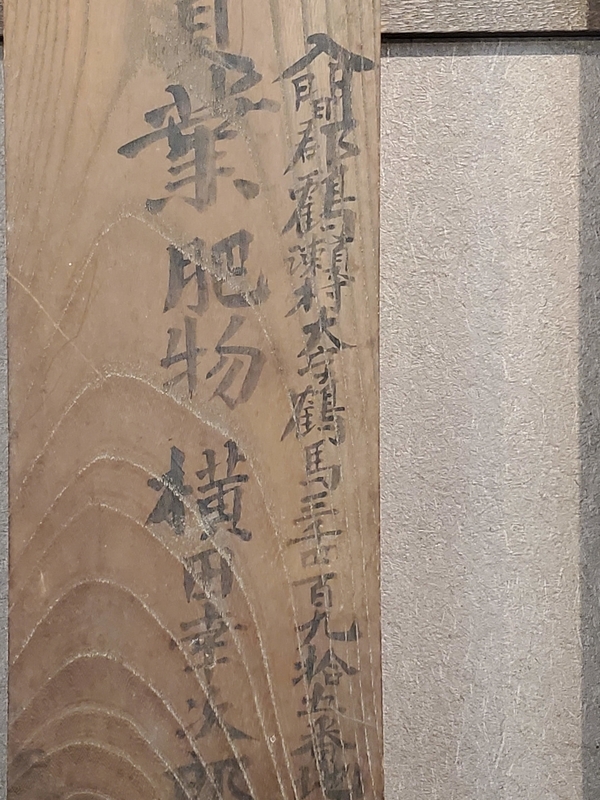 入間郡鶴瀬村大字鶴馬三千四百九拾五番地
業肥物 横田幸次郎